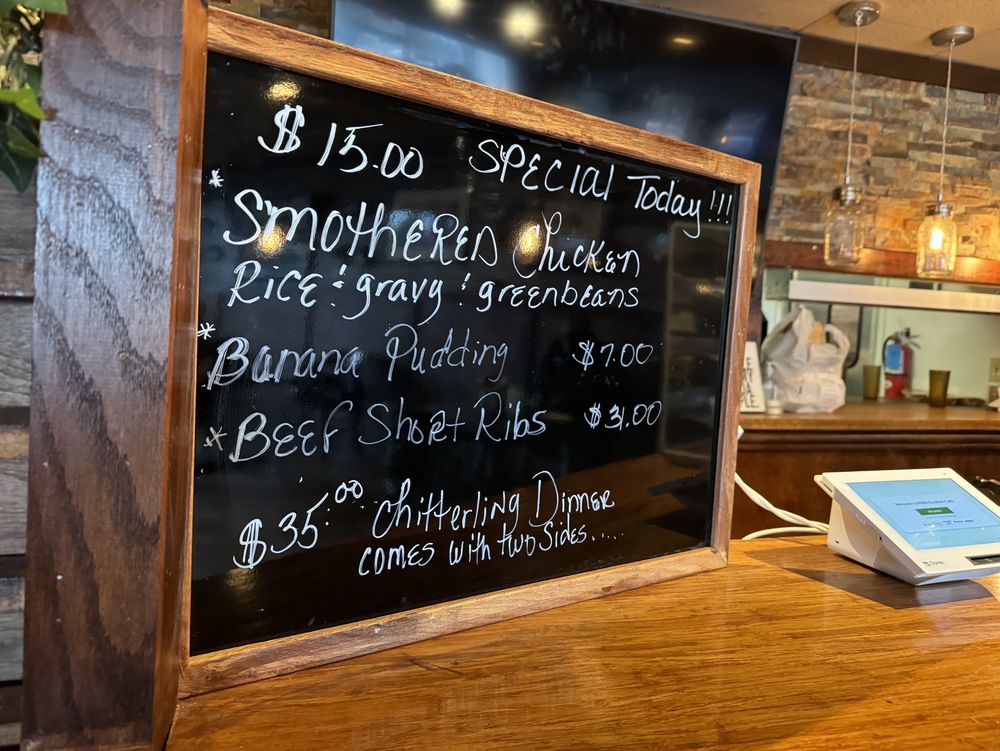 $15.00 SPECIal Today!!!
* SmotheREd Chicken
RicE & gravy & greenbeans
* Banana Pudding $7.00
* BEEF ShoRt Ribs $31.00
$35.00 chitterling DinnER
comes with two Sides.....